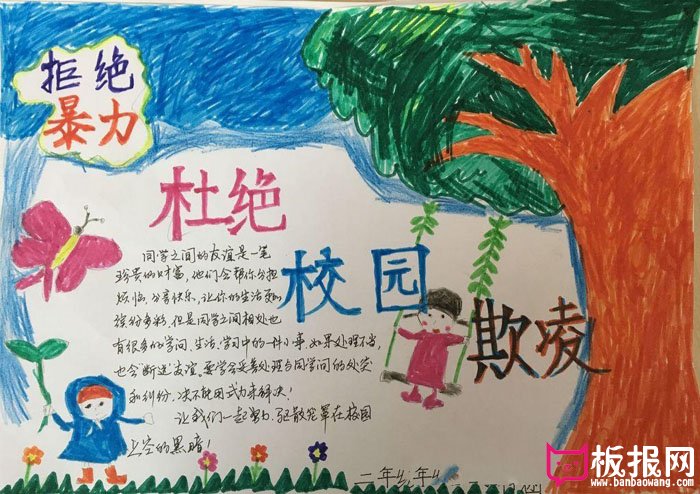 拒绝
暴力
杜绝
校园
欺凌
同学之间的友谊是一笔
珍贵的财富,他们会帮你分担
烦恼,分享快乐,让你的生活更加
缤纷多彩,但是同学之间相处也
有很多的学问、生活、学习中的一件小事,如果处理不当,
也会断送友谊。要学会妥善处理与同学间的处突
和纠纷,决不能用武力来解决!
让我们一起努力,驱散笼罩在校园
上空的黑暗!
二年
年
板报网
www.banbaowang.com